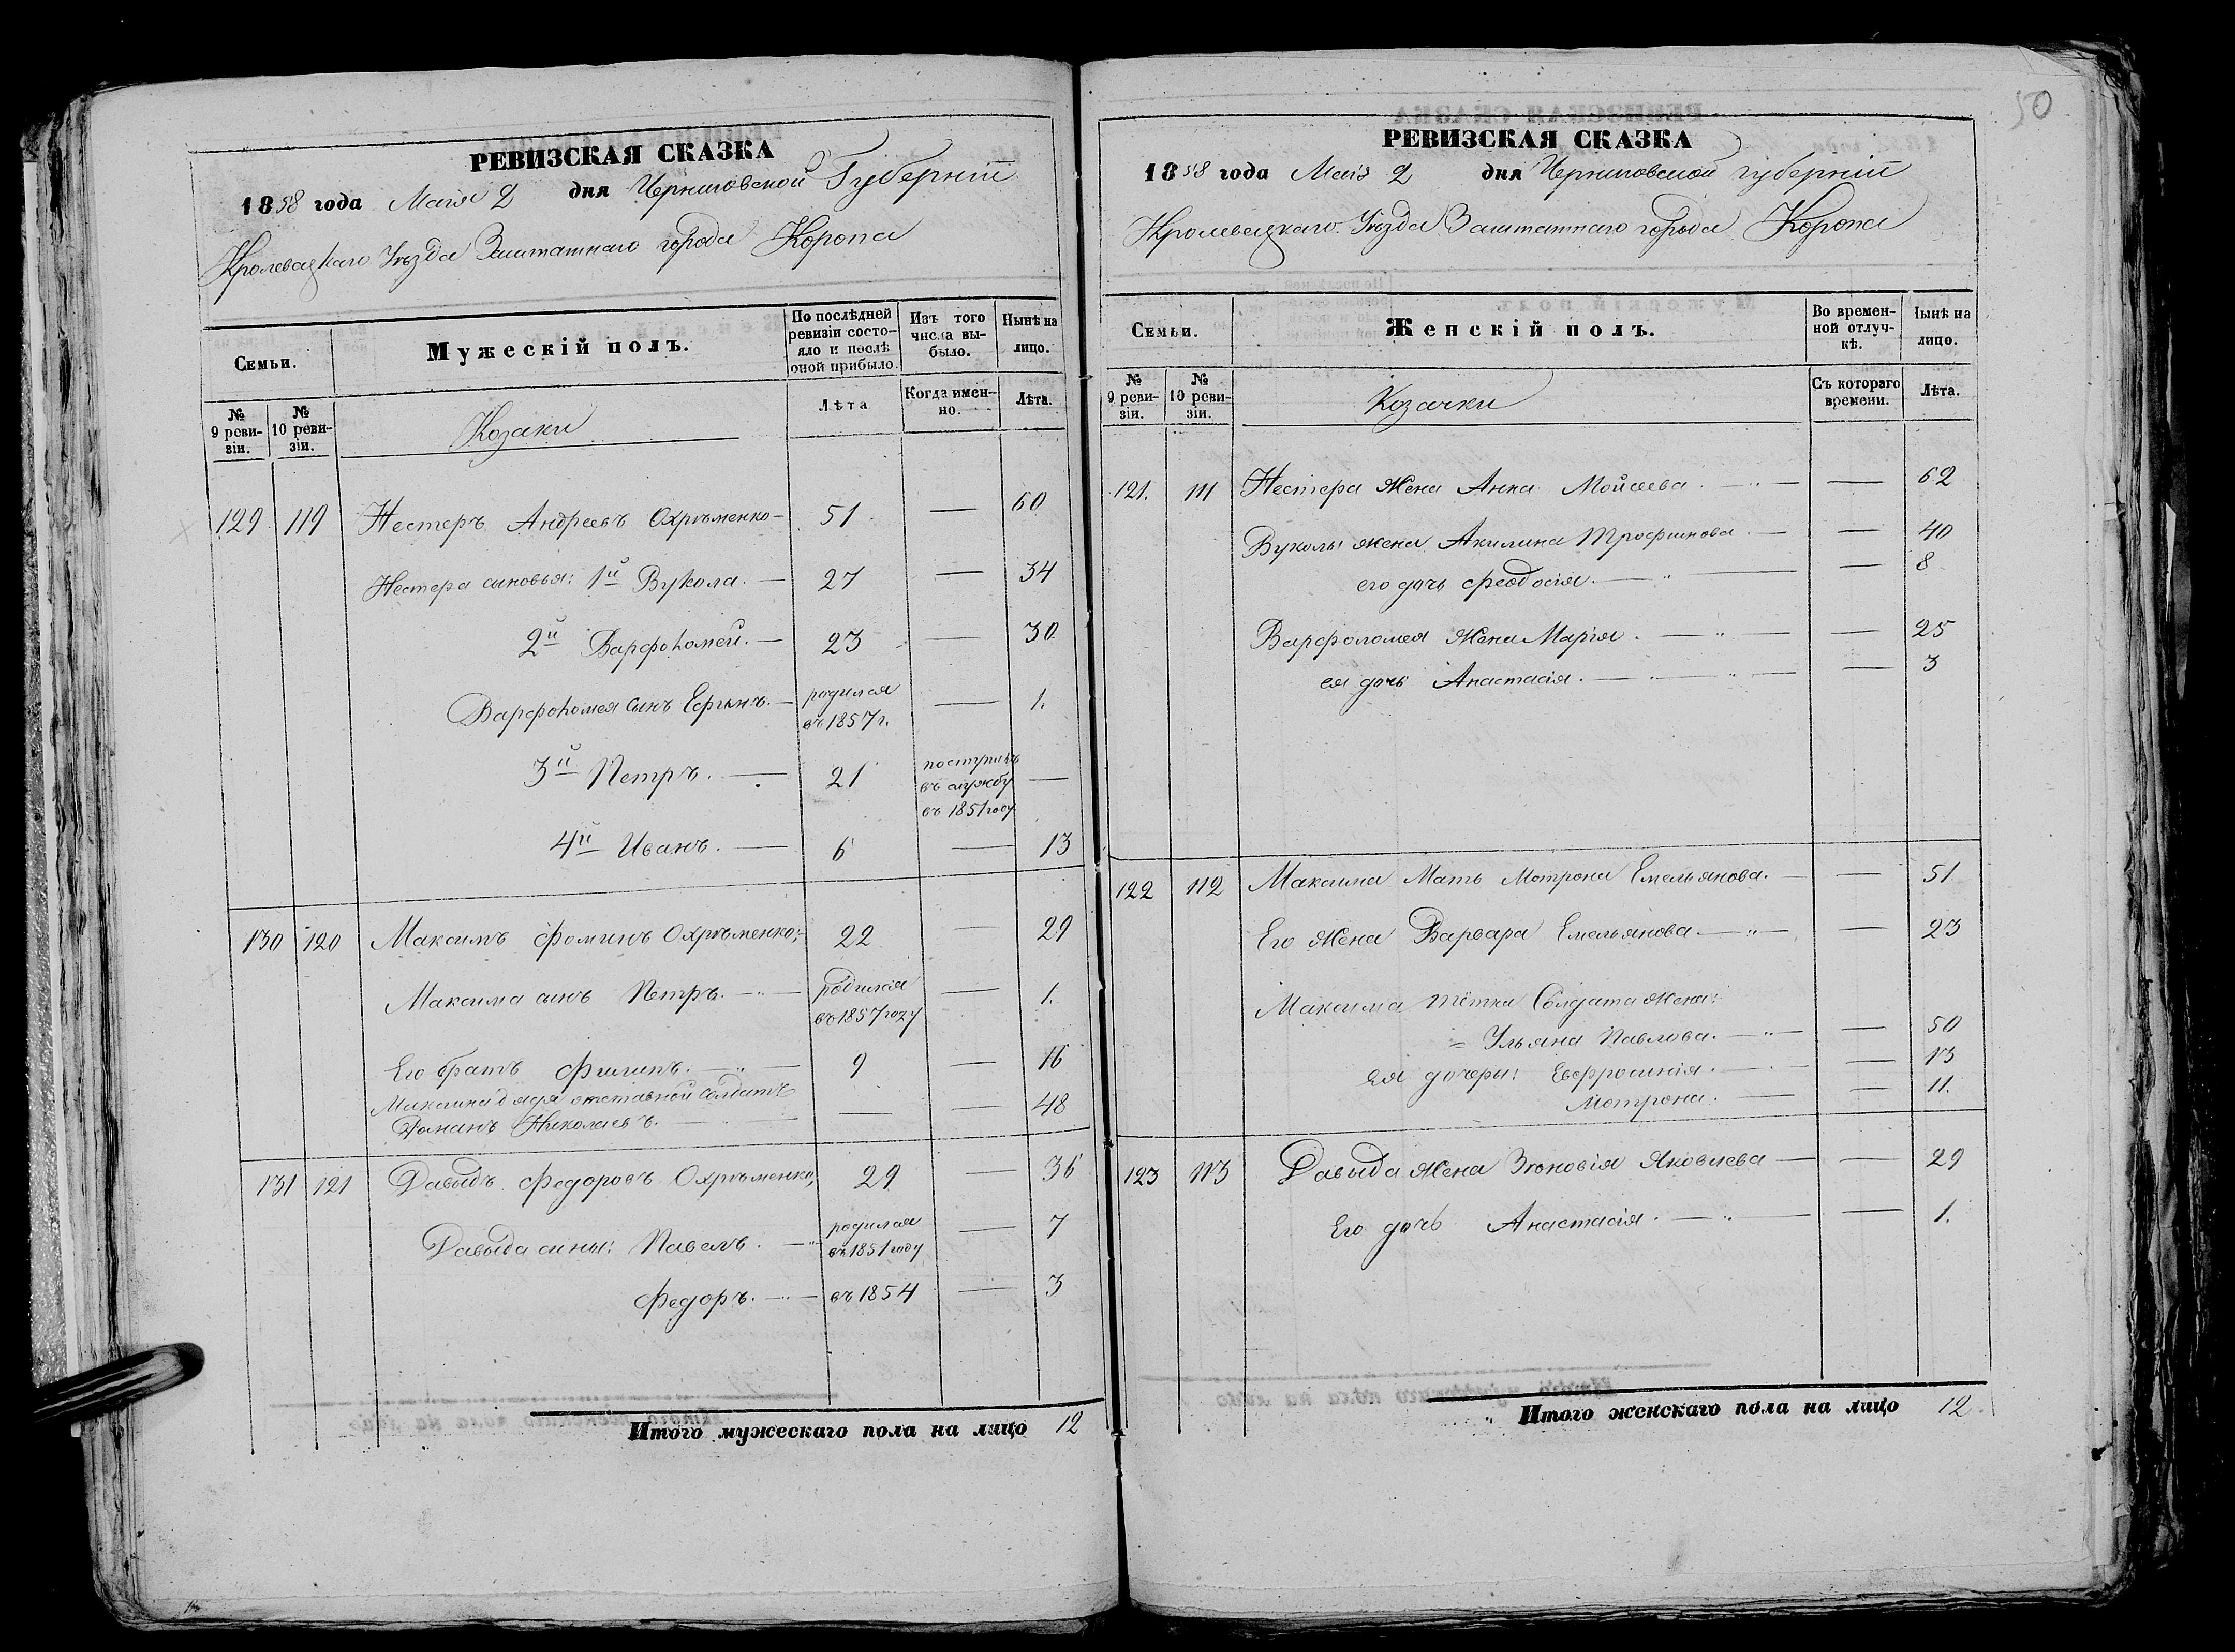 РЕВИЗСКАЯ СКАЗКА
1858 года Маія 2 дня Черниговской Губерніи
Кролевецкаго Уѣзда Заштатнаго города Коропа
Семьи.
Мужескій полъ.
По послѣдней ревизіи состояло и послѣ оной прибыло.
Изъ того числа выбыло.
Нынѣ на лицо.
№ 9 ревизіи.
№ 10 ревизіи.
Козаки
Лѣта
Когда именно.
Лѣта.
129 119 Нестеръ Андреевъ Охрѣменко — 51 — 60
Нестера сыновья: 1й Вукола. — 27 — 34
2й Варфоломей. — 23 — 30
Варфоломея сынъ — родился въ 1857 г. — 1.
3й Петръ. — 21 поступилъ въ службу въ 1851 году —
4й Иванъ. — 6 — 13
130 120 Максимъ Фоминъ Охрѣменко; 22 — 29
Максима сынъ Петръ. — родился въ 1857 году — 1.
Его братъ Филипъ. — 9 — 16
Максима дядя отставной солдатъ
Романъ Николаевъ. — — — 48
131 121 Давыдъ Федоровъ Охрѣменко; 29 — 36
Давыда сыны: Павелъ. — родился въ 1851 году — 7
Федоръ. — въ 1854 — 3
Итого мужескаго пола на лицо 12
50
РЕВИЗСКАЯ СКАЗКА
1858 года Маія 2 дня Черниговской губерніи
Кролевецкаго Уѣзда Заштатнаго города Коропа
Семьи.
Женскій полъ.
Во временной отлучкѣ.
Нынѣ на лицо.
№ 9 ревизіи.
№ 10 ревизіи.
Козачки
Съ котораго времени.
Лѣта.
121. 111 Нестера Жена Анна Мойсеева. — — 62
Вуколы жена Акилина Трофимова. — — 40
его дочь Феодосія. — — 8
Варфоломея Жена Марія. — — 25
ея дочь Анастасія. — — 3
122 112 Максима Мать Мотрона Емельянова. — — 51
Его Жена Варвара Емельянова. — — 23
Максима тётка Солдата Жена:
Ульяна Павлова. — — 50
Ея дочеры: Евфросинія. — — 13
Мотрона. — — 11.
123 113 Давыда Жена Зѣновія Яковлева — — 29
Его дочь Анастасія. — — 1.
Итого женскаго пола на лицо 12